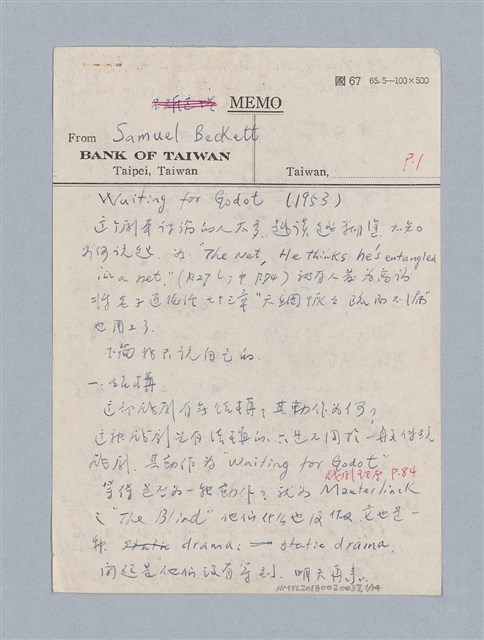 國 67 65.5—100×500
MEMO
From Samuel Beckett
BANK OF TAIWAN
Taipei, Taiwan
Taiwan,
P.1
Waiting for Godot (1953)
這個劇本討論的人太多，越讀越糊塗，不知
如何說起，如 "The Net, He thinks he's entangled
in a net." 就有人
老子道德經七十三章 "天網恢恢疏而不漏"
也用上了.
下面我只說自己的.
一. 結構
這部戲劇有無結構？其動作為何？
這種戲劇是有結構的，只是不同於一般傳統
戲劇. 其動作為 "Waiting for Godot"
戲劇 P.84
等待是否為一種動作？就如 Maeterlinck
之 "The Blind" 他們什麼也沒做，這也是一
種 static drama: — static drama.
問題是他們沒有等到. 明天再來.